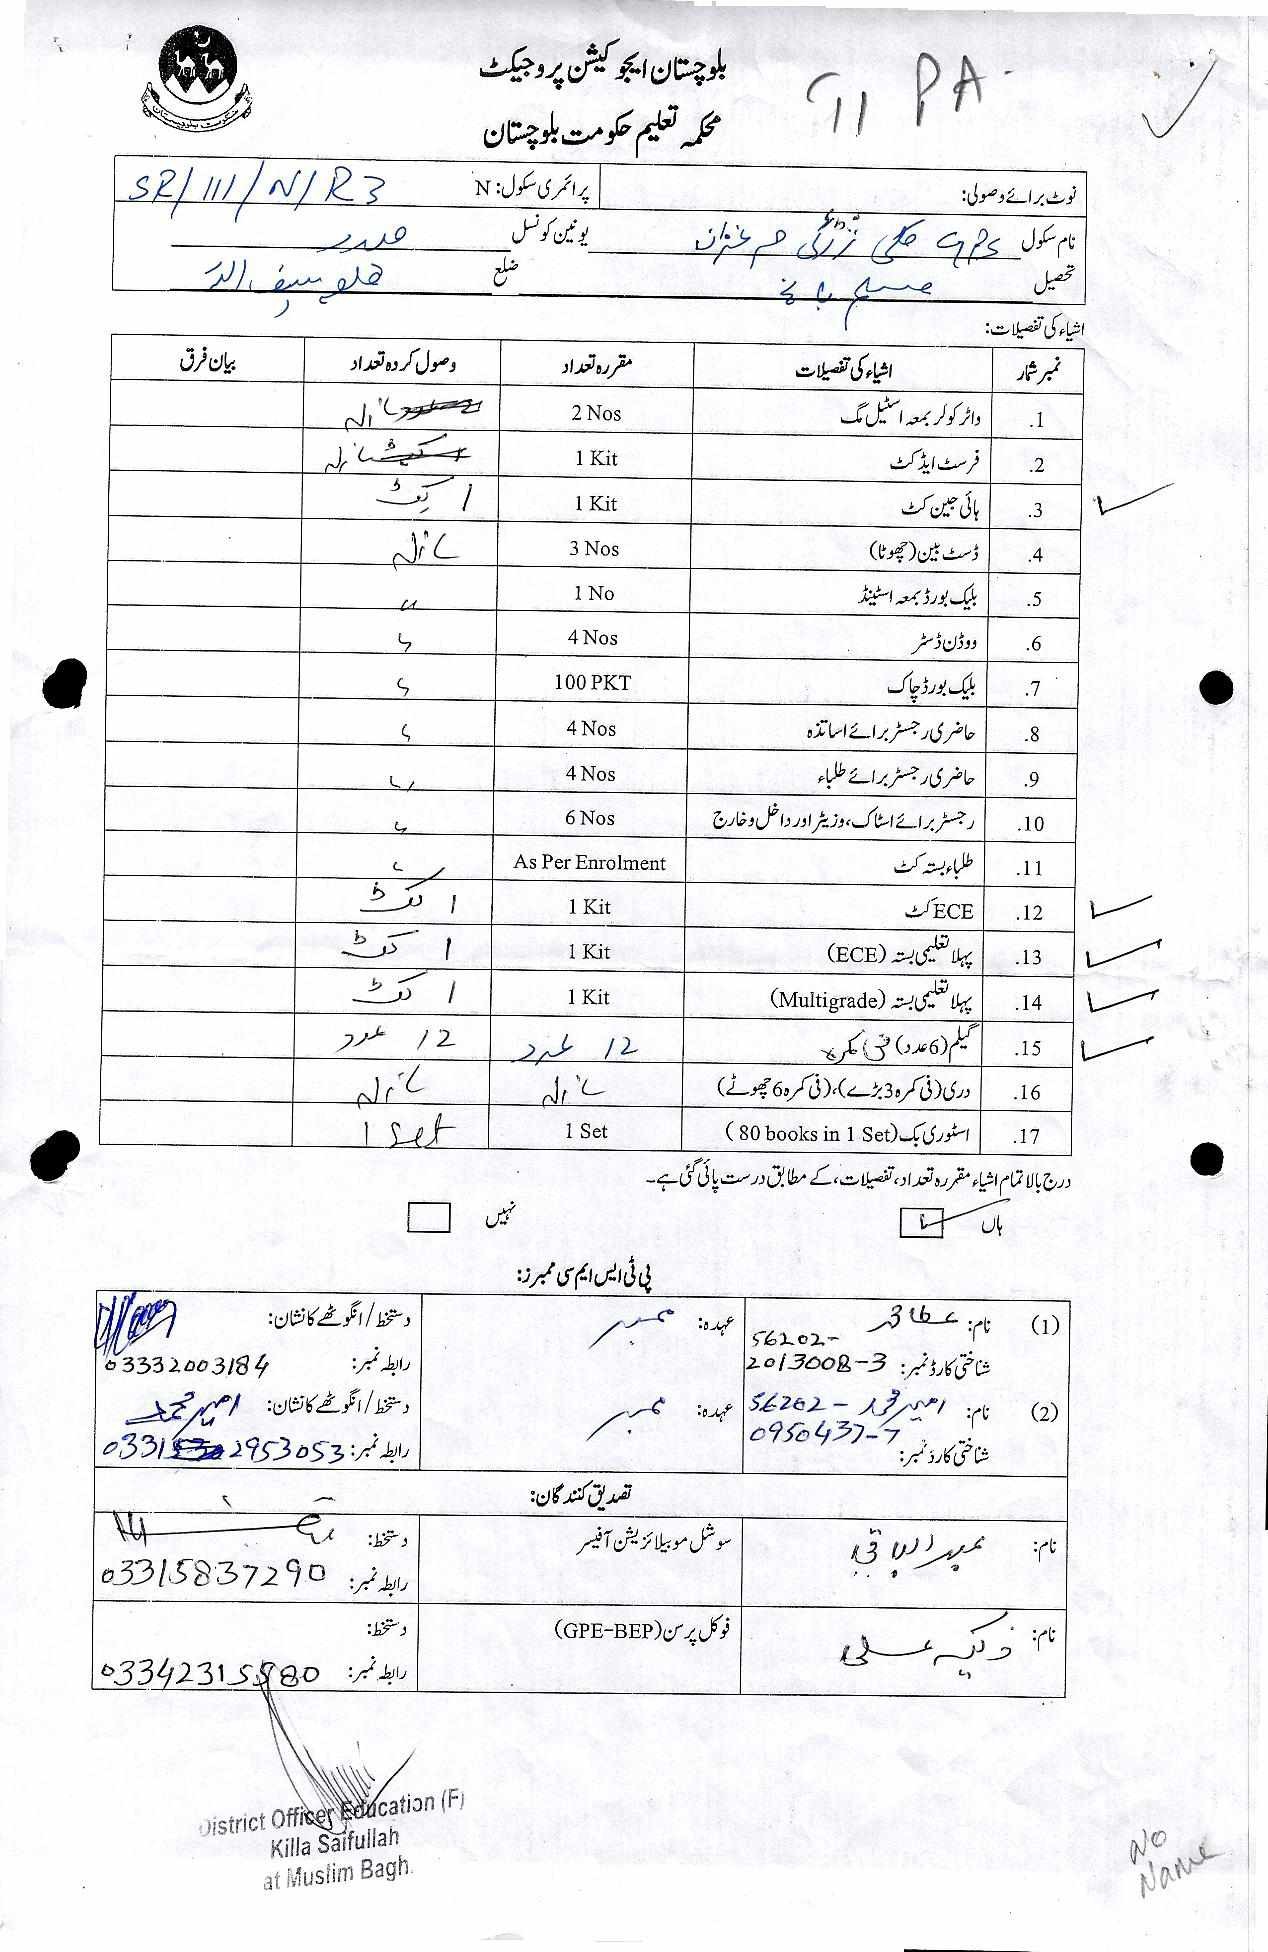 بلوچستان ایجوکیشن پروجیکٹ
محکمہ تعلیم حکومت بلوچستان
PA
نوٹ برائے وصولی: پرائمری سکول: N SR/111/N/R3
نام سکول GPS کلی یونین کونسل
تحصیل مسلم باغ ضلع قلعہ سیف اللہ
اشیاء کی تفصیلات:
نمبر شمار اشیاء کی تفصیلات مقررہ تعداد وصول کردہ تعداد بیان فرق
1. واٹر کولر بمعہ اسٹیل مگ 2 Nos
2. فرسٹ ایڈ کٹ 1 Kit
3. ہائی جین کٹ 1 Kit 1 کٹ
4. ڈسٹ بین (چھوٹا) 3 Nos
5. بلیک بورڈ بمعہ اسٹینڈ 1 No
6. ووڈن ڈسٹر 4 Nos
7. بلیک بورڈ چاک 100 PKT
8. حاضری رجسٹر برائے اساتذہ 4 Nos
9. حاضری رجسٹر برائے طلباء 4 Nos
10. رجسٹر برائے اسٹاک، وزیٹر اور داخل و خارج 6 Nos
11. طلباء بستہ کٹ As Per Enrolment
12. ECE کٹ 1 Kit 1 کٹ
13. پہلا تعلیمی بستہ (ECE) 1 Kit 1 کٹ
14. پہلا تعلیمی بستہ (Multigrade) 1 Kit 1 کٹ
15. گیلم (6 عدد) فی کمرہ 12 عدد 12 عدد
16. دری (فی کمرہ 3 بڑے)، (فی کمرہ 6 چھوٹے)
17. اسٹوری بک (80 books in 1 Set) 1 Set 1 Set
درج بالا تمام اشیاء مقررہ تعداد، تفصیلات، کے مطابق درست پائی گئی ہے۔
ہاں نہیں
پی ٹی ایس ایم سی ممبرز:
(1) نام: عہدہ: ممبر دستخط/انگوٹھے کا نشان:
شناختی کارڈ نمبر: 56202-2013008-3 رابطہ نمبر: 03332003184
(2) نام: امیر محمد عہدہ: ممبر دستخط/انگوٹھے کا نشان: امیر محمد
شناختی کارڈ نمبر: 56202-0950437-7 رابطہ نمبر: 03312953053
تصدیق کنندگان:
نام: عبدالباقی سوشل موبیلائزیشن آفیسر دستخط:
رابطہ نمبر: 03315837290
نام: فوکل پرسن (GPE-BEP) دستخط:
رابطہ نمبر: 03342315580
District Officer Education (F)
Killa Saifullah
at Muslim Bagh.
No
Name